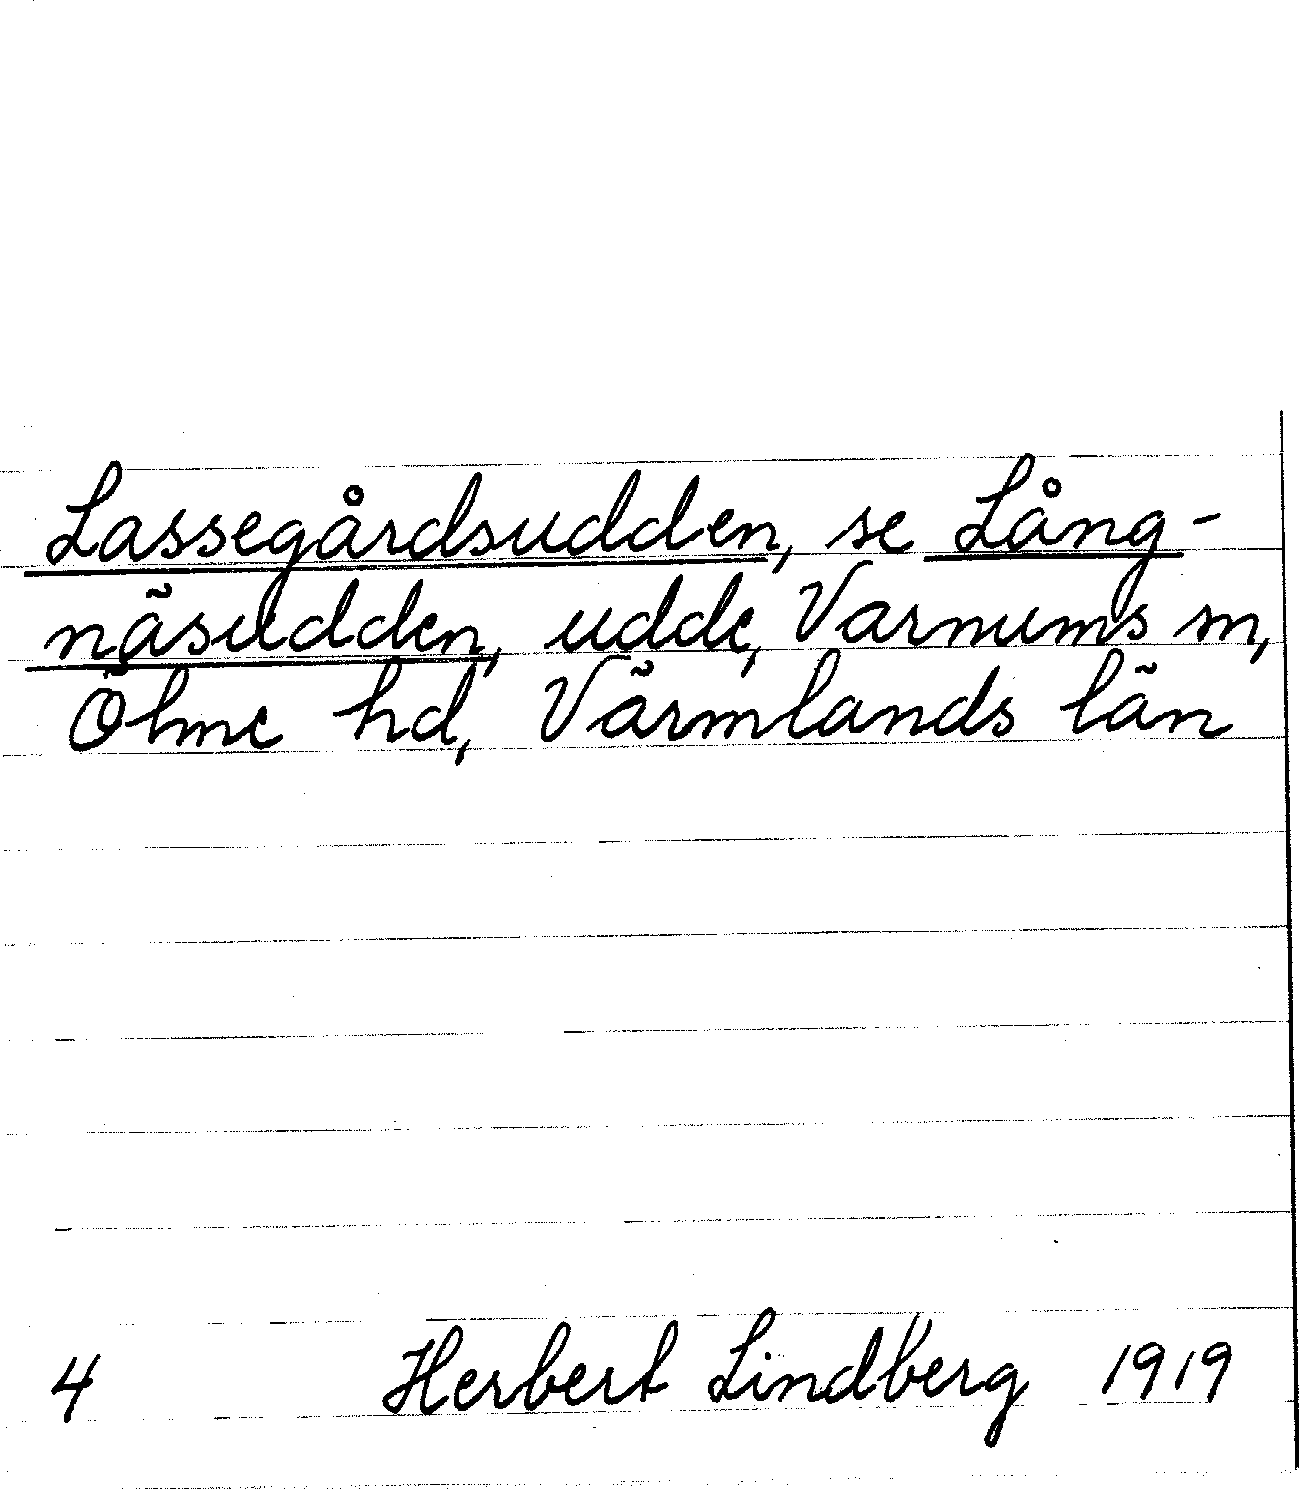 Lassegårdsudden, se Lång-
näsudden, udde, Varnums sn,
Ölme hd, Värmlands län
4 Herbert Lindberg 1919